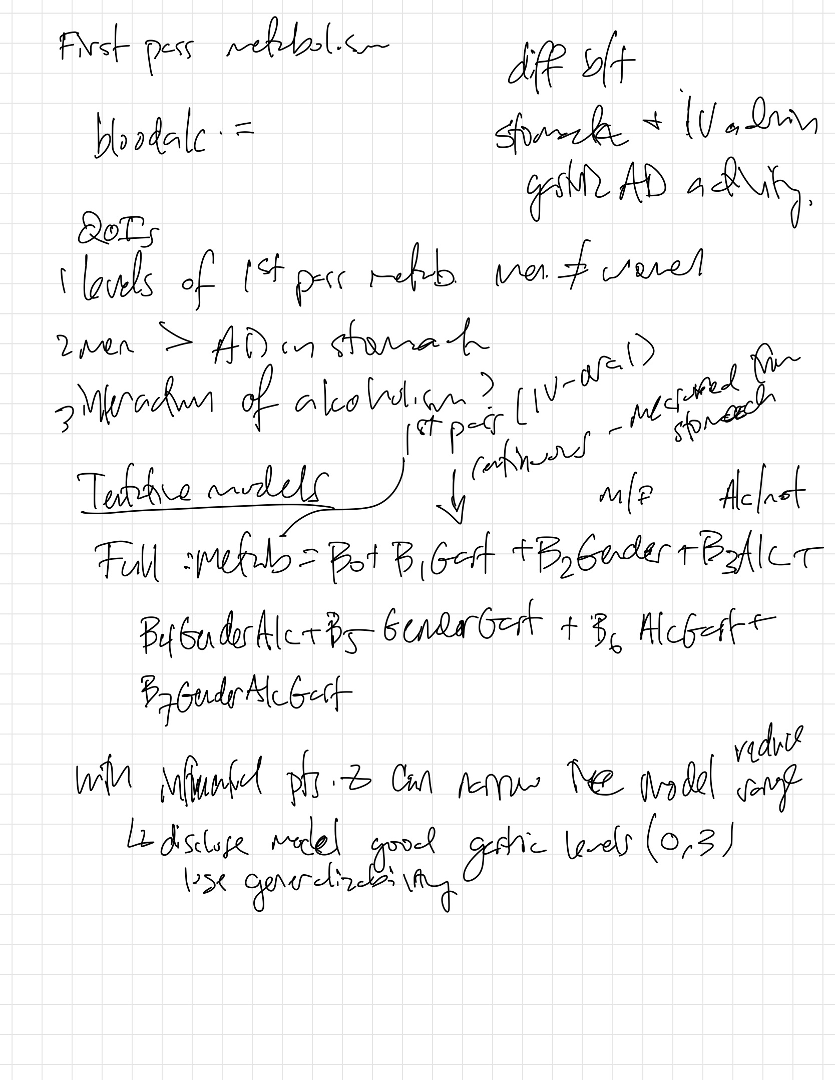 First pass metabolism
diff b/t
stomach + IV admin
gastric AD activity.
bloodalc. =
QOIs
1 levels of 1st pass metab. men ≠ women
2 men > AD in stomach
3 interaction of alcoholism?
1st pass (IV-oral)
continuous - measured from
stomach
Tentative models
M/F Alc/not
Full : metab = B0 + B1Gast + B2Gender + B3Alc +
B4GenderAlc + B5 GenderGast + B6 AlcGast +
B7GenderAlcGast
with influential pts. → can narrow the model reduce
range
↳ disclose model good gastric levels (0,3)
lose generalizability